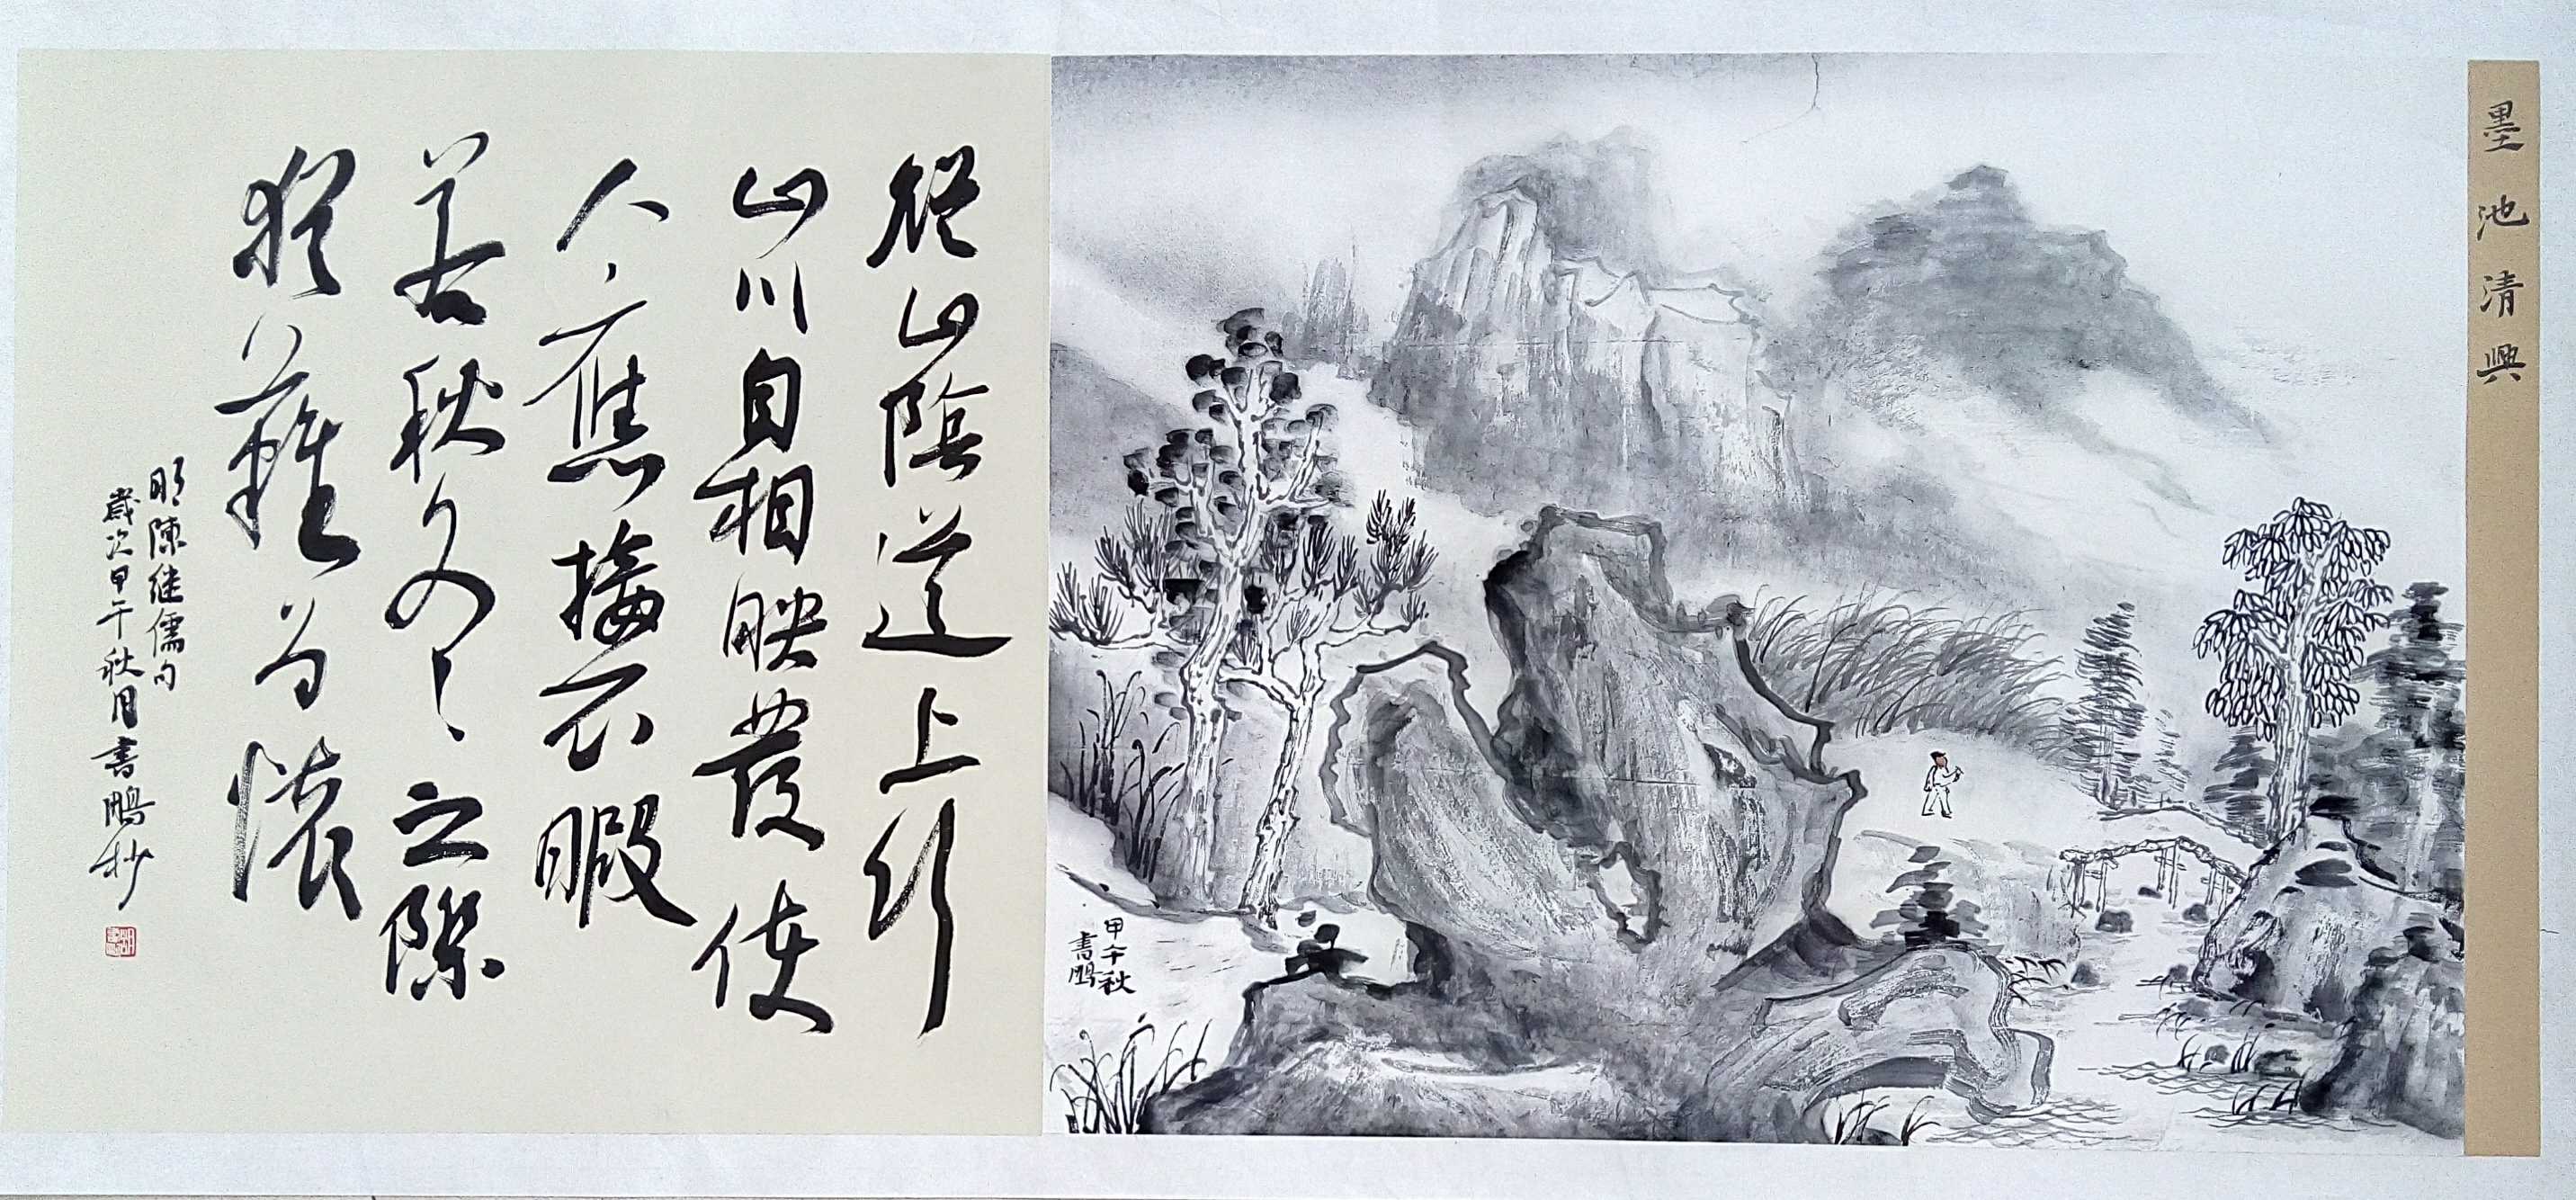 墨池清興
甲午秋
書鵬
從山陰道上行
山川自相映發使
人應接不暇
若秋冬之際
猶難为懷
明陳继儒句
歲次甲午秋月書鵬抄